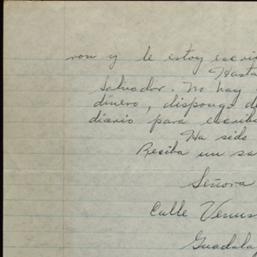 ron y le estoy escri
Hasta
Salvador. No hay
dinero, dispongo d
diario para escrib
Ha sido
Reciba un sa
Señora
Calle Venus
Guadala